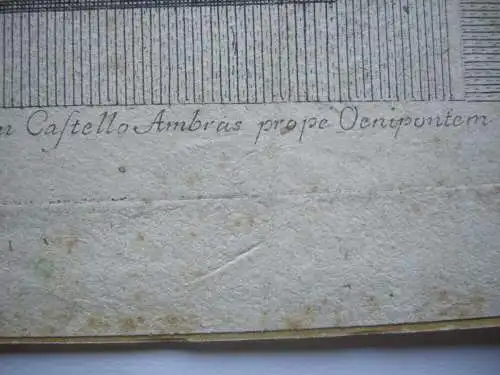 Caſtello Ambras prope Oenipontem